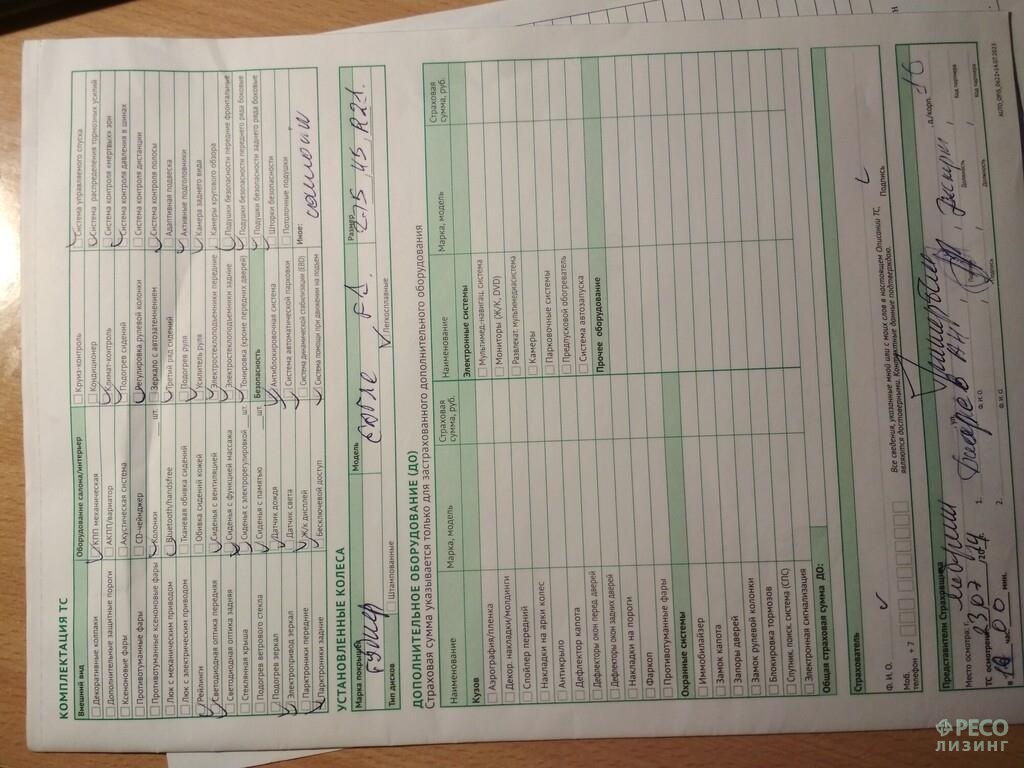 КОМПЛЕКТАЦИЯ ТС
Внешний вид
Декоративные колпаки
Дополнительные защитные пороги
Ксеноновые фары
Противотуманные фары
Противотуманные ксеноновые фары
Люк с механическим приводом
Люк с электрическим приводом
Рейлинги
Светодиодная оптика передняя
Светодиодная оптика задняя
Стеклянная крыша
Подогрев ветрового стекла
Подогрев зеркал
Электропривод зеркал
Парктроники передние
Парктроники задние
Оборудование салона/интерьер
КПП механическая
АКПП/вариатор
Акустическая система
CD-чейнджер
Колонки ___ шт.
Bluetooth/handsfree
Тканевая обивка сидений
Обивка сидений кожей
Сиденья с вентиляцией
Сиденья с функцией массажа
Сиденья с электрорегулировкой ___ шт.
Сиденья с памятью ___ шт.
Датчик дождя
Датчик света
Ж/к дисплей
Бесключевой доступ
Круиз-контроль
Кондиционер
Климат-контроль
Подогрев сидений
Регулировка рулевой колонки
Зеркало с автозатемнением
Третий ряд сидений
Подогрев руля
Усилитель руля
Электростеклоподъемники передние
Электростеклоподъемники задние
Тонировка (кроме передних дверей)
Безопасность
Антиблокировочная система
Система автоматической парковки
Система динамической стабилизации (EBD)
Система помощи при движении на подъем
Система управляемого спуска
Система распределения тормозных усилий
Система контроля «мертвых» зон
Система контроля давления в шинах
Система контроля дистанции
Система контроля полосы
Адаптивная подвеска
Активные подголовники
Камера заднего вида
Камеры кругового обзора
Подушки безопасности передние фронтальные
Подушки безопасности переднего ряда боковые
Подушки безопасности заднего ряда боковые
Шторки безопасности
Потолочные подушки
Иное:
УСТАНОВЛЕННЫЕ КОЛЕСА
Марка покрышек
Модель
Размер 275, 45, R21.
Тип дисков
Штампованные
Легкосплавные
ДОПОЛНИТЕЛЬНОЕ ОБОРУДОВАНИЕ (ДО)
Страховая сумма указывается только для застрахованного дополнительного оборудования
Наименование
Марка, модель
Страховая сумма, руб.
Наименование
Марка, модель
Страховая сумма, руб.
Кузов
Аэрография/пленка
Декор. накладки/молдинги
Спойлер передний
Накладки на арки колес
Антикрыло
Дефлектор капота
Дефлекторы окон перед. дверей
Дефлекторы окон задних дверей
Накладки на пороги
Фаркоп
Противотуманные фары
Охранные системы
Иммобилайзер
Замок капота
Запоры дверей
Замок рулевой колонки
Блокировка тормозов
Спутник. поиск. система (СПС)
Электронная сигнализация
Электронные системы
Мультимед.-навигац. система
Мониторы (Ж/К, DVD)
Развлекат. мультимедиасистема
Камеры
Парковочные системы
Предпусковой обогреватель
Система автозапуска
Прочее оборудование
Общая страховая сумма ДО:
Страхователь
Ф. И. О.
Моб. телефон +7
Все сведения, указанные мной или с моих слов в настоящем Описании ТС, являются достоверными. Контактные данные подтверждаю.
Подпись
Представители Страховщика
Место осмотра:
д./корп. 16
ТС осмотрел
мин.
1.
Ф. И. О.
Подпись
Должность
Код партнера
2.
Ф. И. О.
Должность
Код партнера
РЕСО
ЛИЗИНГ